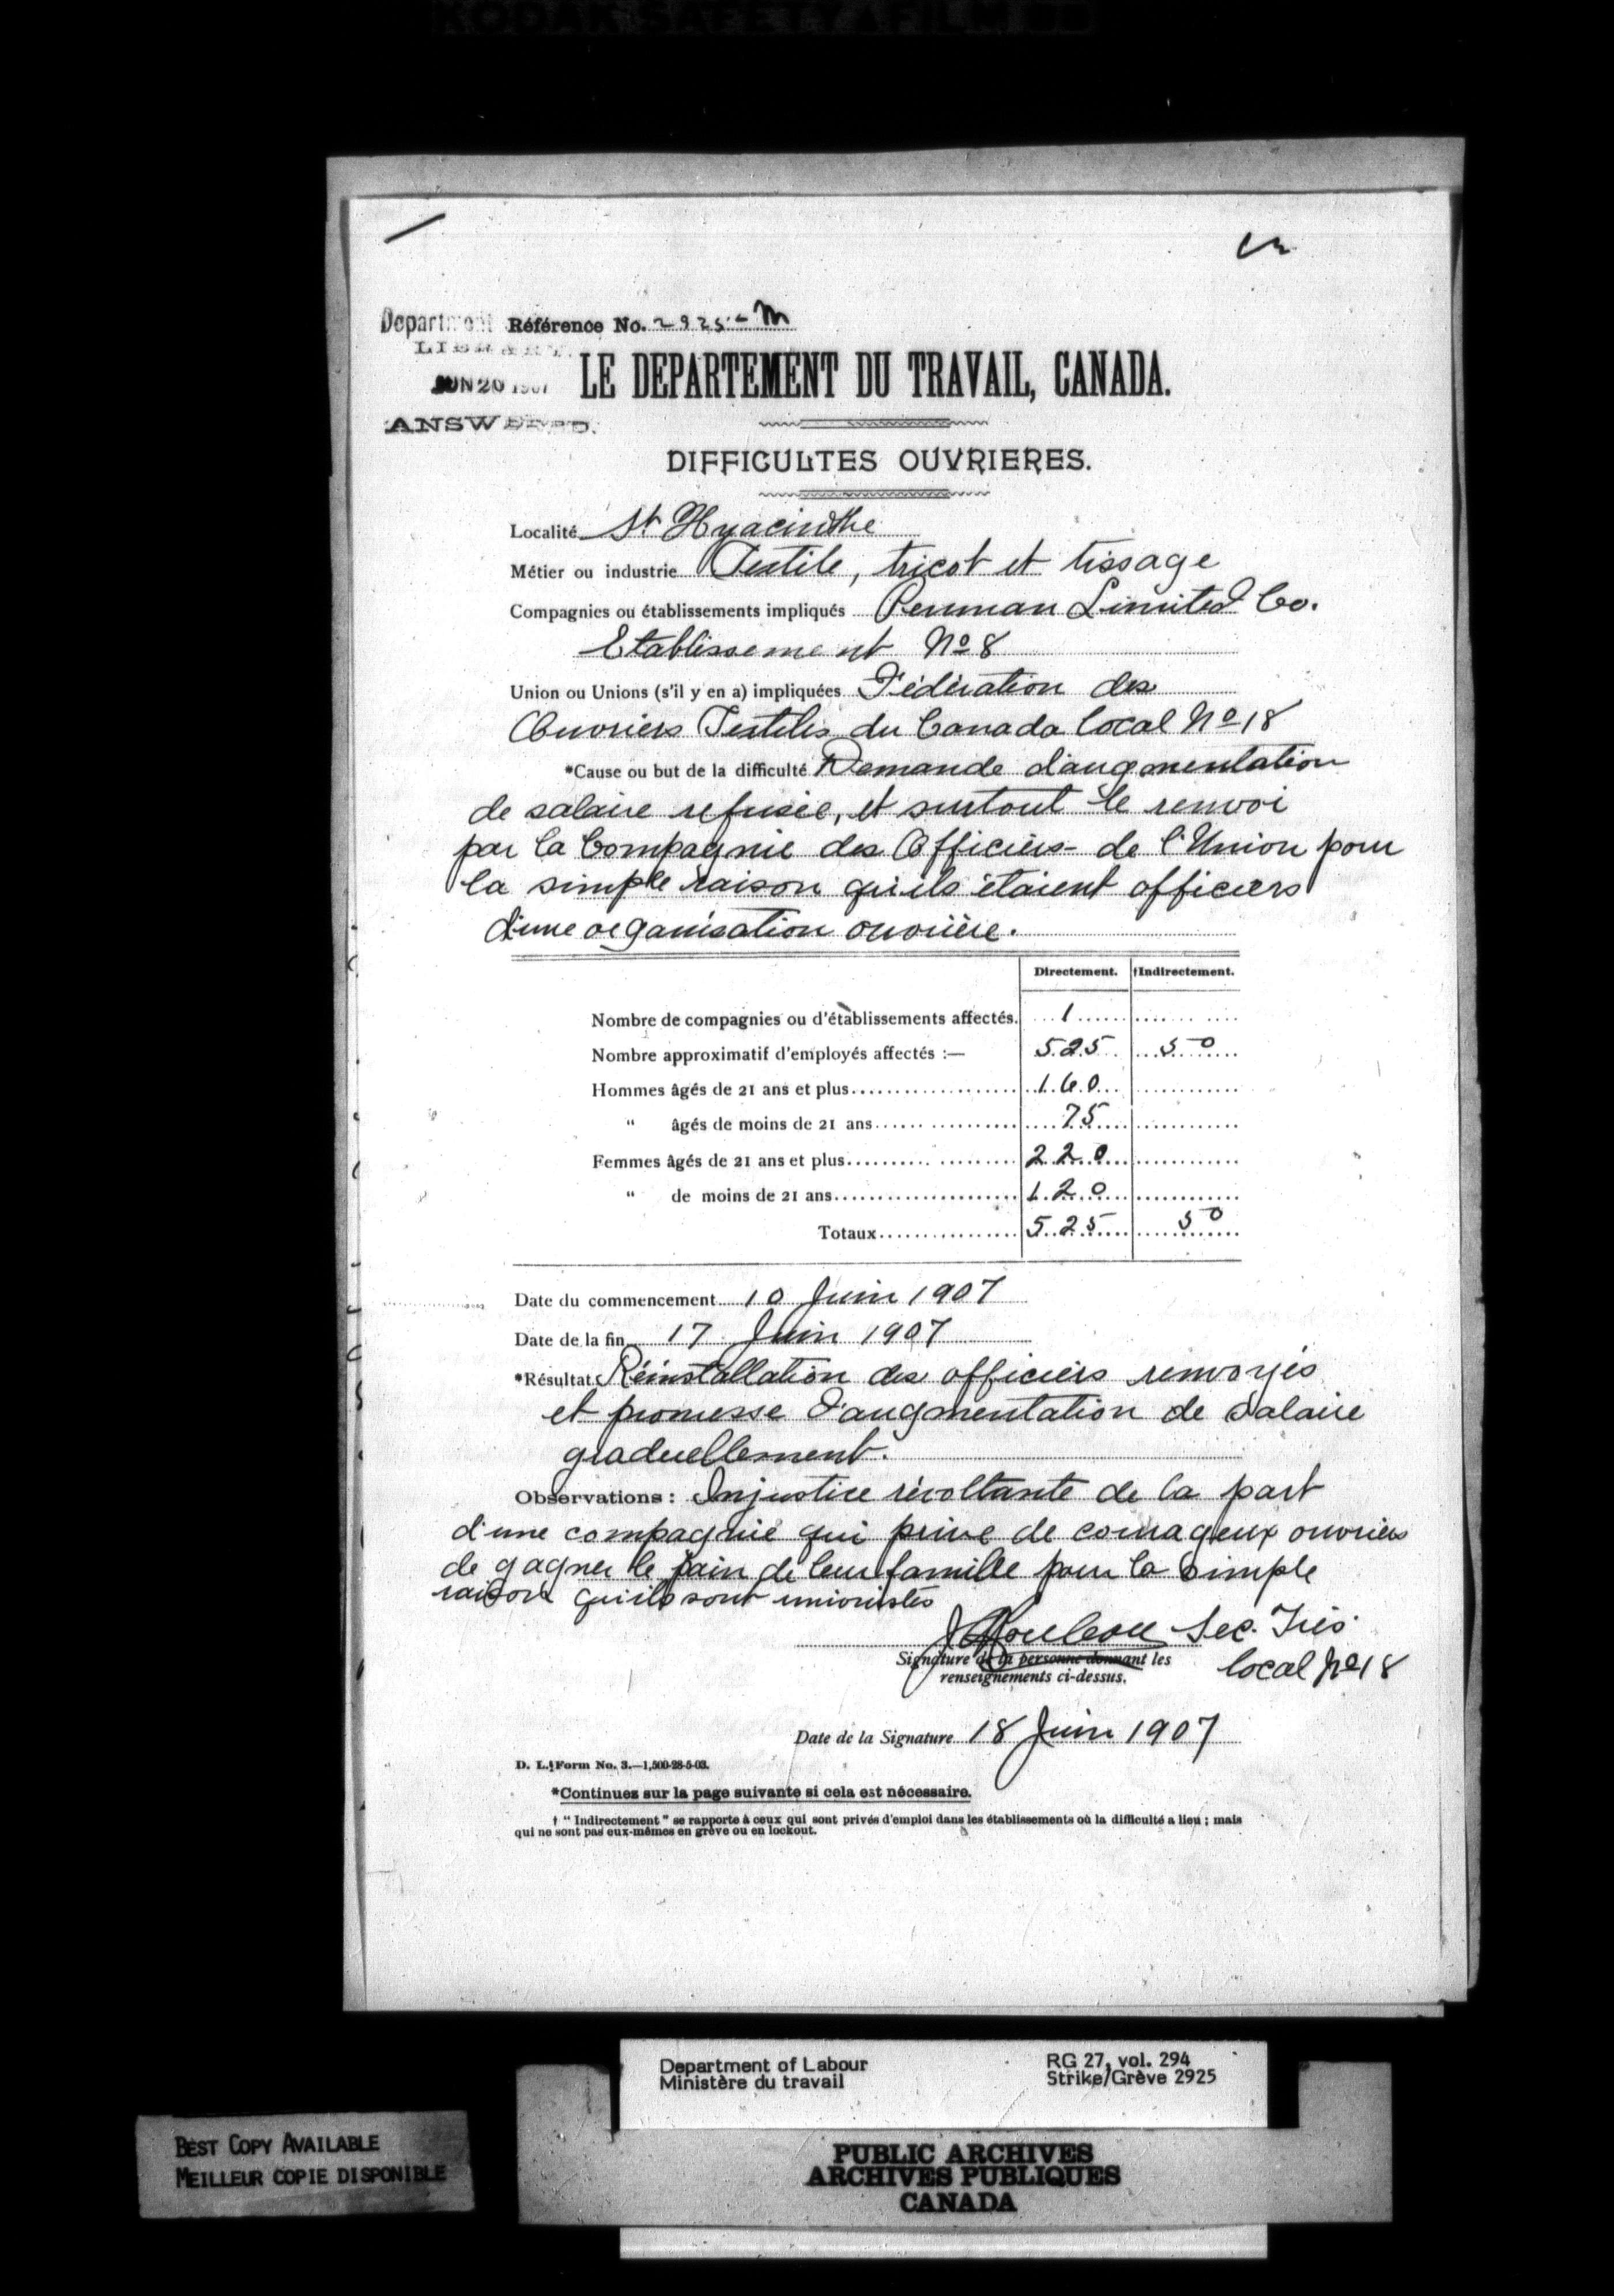 KODAK SAFETY FILM
Department Référence No. 2925-M
LIBRARY
JUN 20 1907 LE DEPARTEMENT DU TRAVAIL, CANADA.
ANSWERED.
DIFFICULTES OUVRIERES.
Localité St Hyacinthe
Métier ou industrie Textile, tricot et tissage
Compagnies ou établissements impliqués Penman Limited Co.
Etablissement No 8
Union ou Unions (s'il y en a) impliquées Fédération des
Ouvriers Textiles du Canada local No 18
*Cause ou but de la difficulté Demande d'augmentation
de salaire refusée, et surtout le renvoi
par la Compagnie des Officiers de l'Union pour
la simple raison qu'ils étaient officiers
d'une organisation ouvrière.
Directement. †Indirectement.
Nombre de compagnies ou d'établissements affectés. 1
Nombre approximatif d'employés affectés :— 525 50
Hommes âgés de 21 ans et plus 160
" âgés de moins de 21 ans 75
Femmes âgés de 21 ans et plus 220
" de moins de 21 ans 120
Totaux 525 50
Date du commencement 10 Juin 1907
Date de la fin 17 Juin 1907
*Résultat Réinstallation des officiers renvoyés
et promesse d'augmentation de salaire
graduellement.
Observations : Injustice révoltante de la part
d'une compagnie qui prive de courageux ouvriers
de gagner le pain de leur famille pour la simple
raison qu'ils sont unionistes
J Rouleau Sec. Trés.
Signature de la personne donnant les
renseignements ci-dessus. local No 18
Date de la Signature 18 Juin 1907
D. L. Form No. 3.—1,500-28-5-03.
*Continuez sur la page suivante si cela est nécessaire.
† " Indirectement " se rapporte à ceux qui sont privés d'emploi dans les établissements où la difficulté a lieu ; mais
qui ne sont pas eux-mêmes en grève ou en lockout.
Department of Labour RG 27, vol. 294
Ministère du travail Strike/Grève 2925
BEST COPY AVAILABLE
MEILLEUR COPIE DISPONIBLE
PUBLIC ARCHIVES
ARCHIVES PUBLIQUES
CANADA